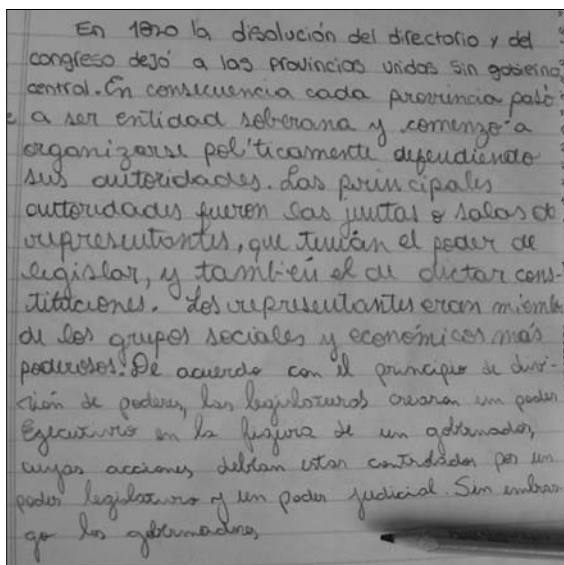 En 1820 la disolución del directorio y del
congreso dejó a las provincias unidas sin gobierno
central. En consecuencia cada provincia pasó
a ser entidad soberana y comenzo a
organizarse pol'ticamente defendiendo
sus autoridades. Las principales
auttoridades fueron las juntas o salas de
representantes, que tenían el poder de
legislar, y también el de dictar cons-
titiciones. Los representantes eran miemb
de los grupos sociales y económicos más
poderosos. De acuerdo con el principio de divi-
sión de poderes, las legislaturas crearon un poder
Egecutivo en la figura de un gobernador,
cuyas acciones debían estar controladas por un
poder legislativo y un poder judicial. Sin embar-
go los gobernadores